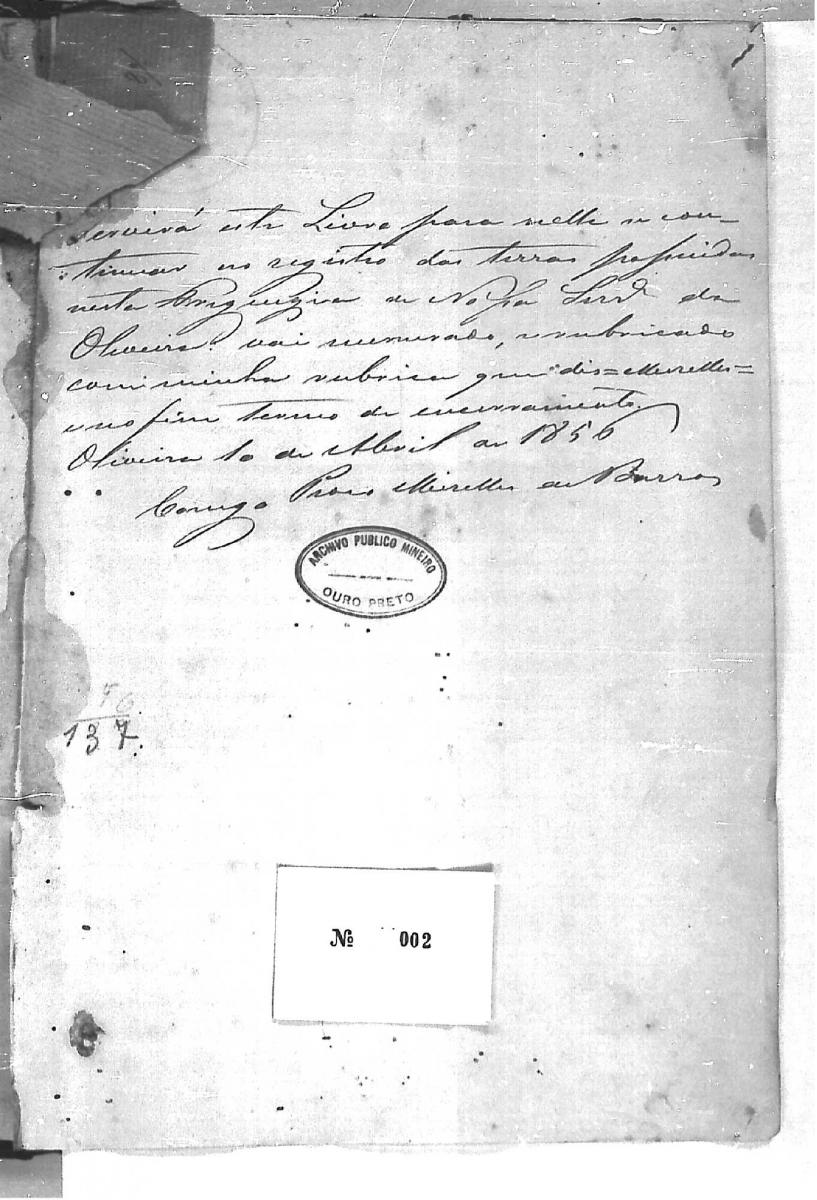 Servirá este Livro para nelle se con-
tinuar no registro das terras possuidas
nesta Freguezia de Nossa Senrª da
Oliveira: vai numerado, e rubricado
com minha rubrica que dis=Meirelles=
e no fim termo de encerramento.
Oliveira 10 de Abril de 1856
Conego Meirelles de Barros
ARCHIVO PUBLICO MINEIRO
OURO PRETO
76
137.
Nº 002